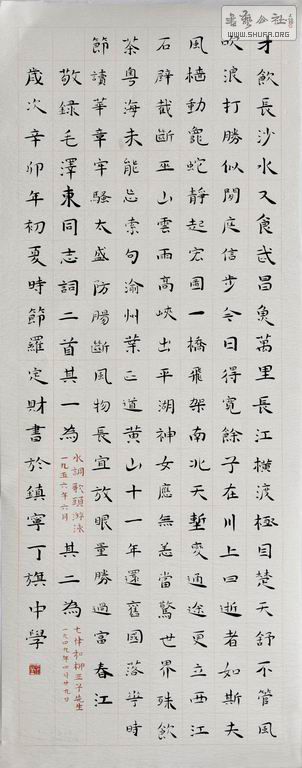 書藝公社
www.SHUFA.ORG
才飲長沙水又食武昌魚萬里長江橫渡極目楚天舒不管風
吹浪打勝似閒庭信步今日得寬餘子在川上曰逝者如斯夫
風檣動龜蛇靜起宏圖一橋飛架南北天塹變通途更立西江
石壁截斷巫山雲雨高峽出平湖神女應無恙當驚世界殊飲
茶粵海未能忘索句渝州葉正道黃山十一年還舊國落華時
節讀華章牢騷太盛防腸斷風物長宜放眼量勝過富春江
敬錄毛澤東同志詞二首其一為
水調歌頭游泳
一九五六年六月
其二為
七律和柳亞子先生
一九四九年四月廿九日
歲次辛卯年初夏時節羅定財書於鎮寧丁旗中學